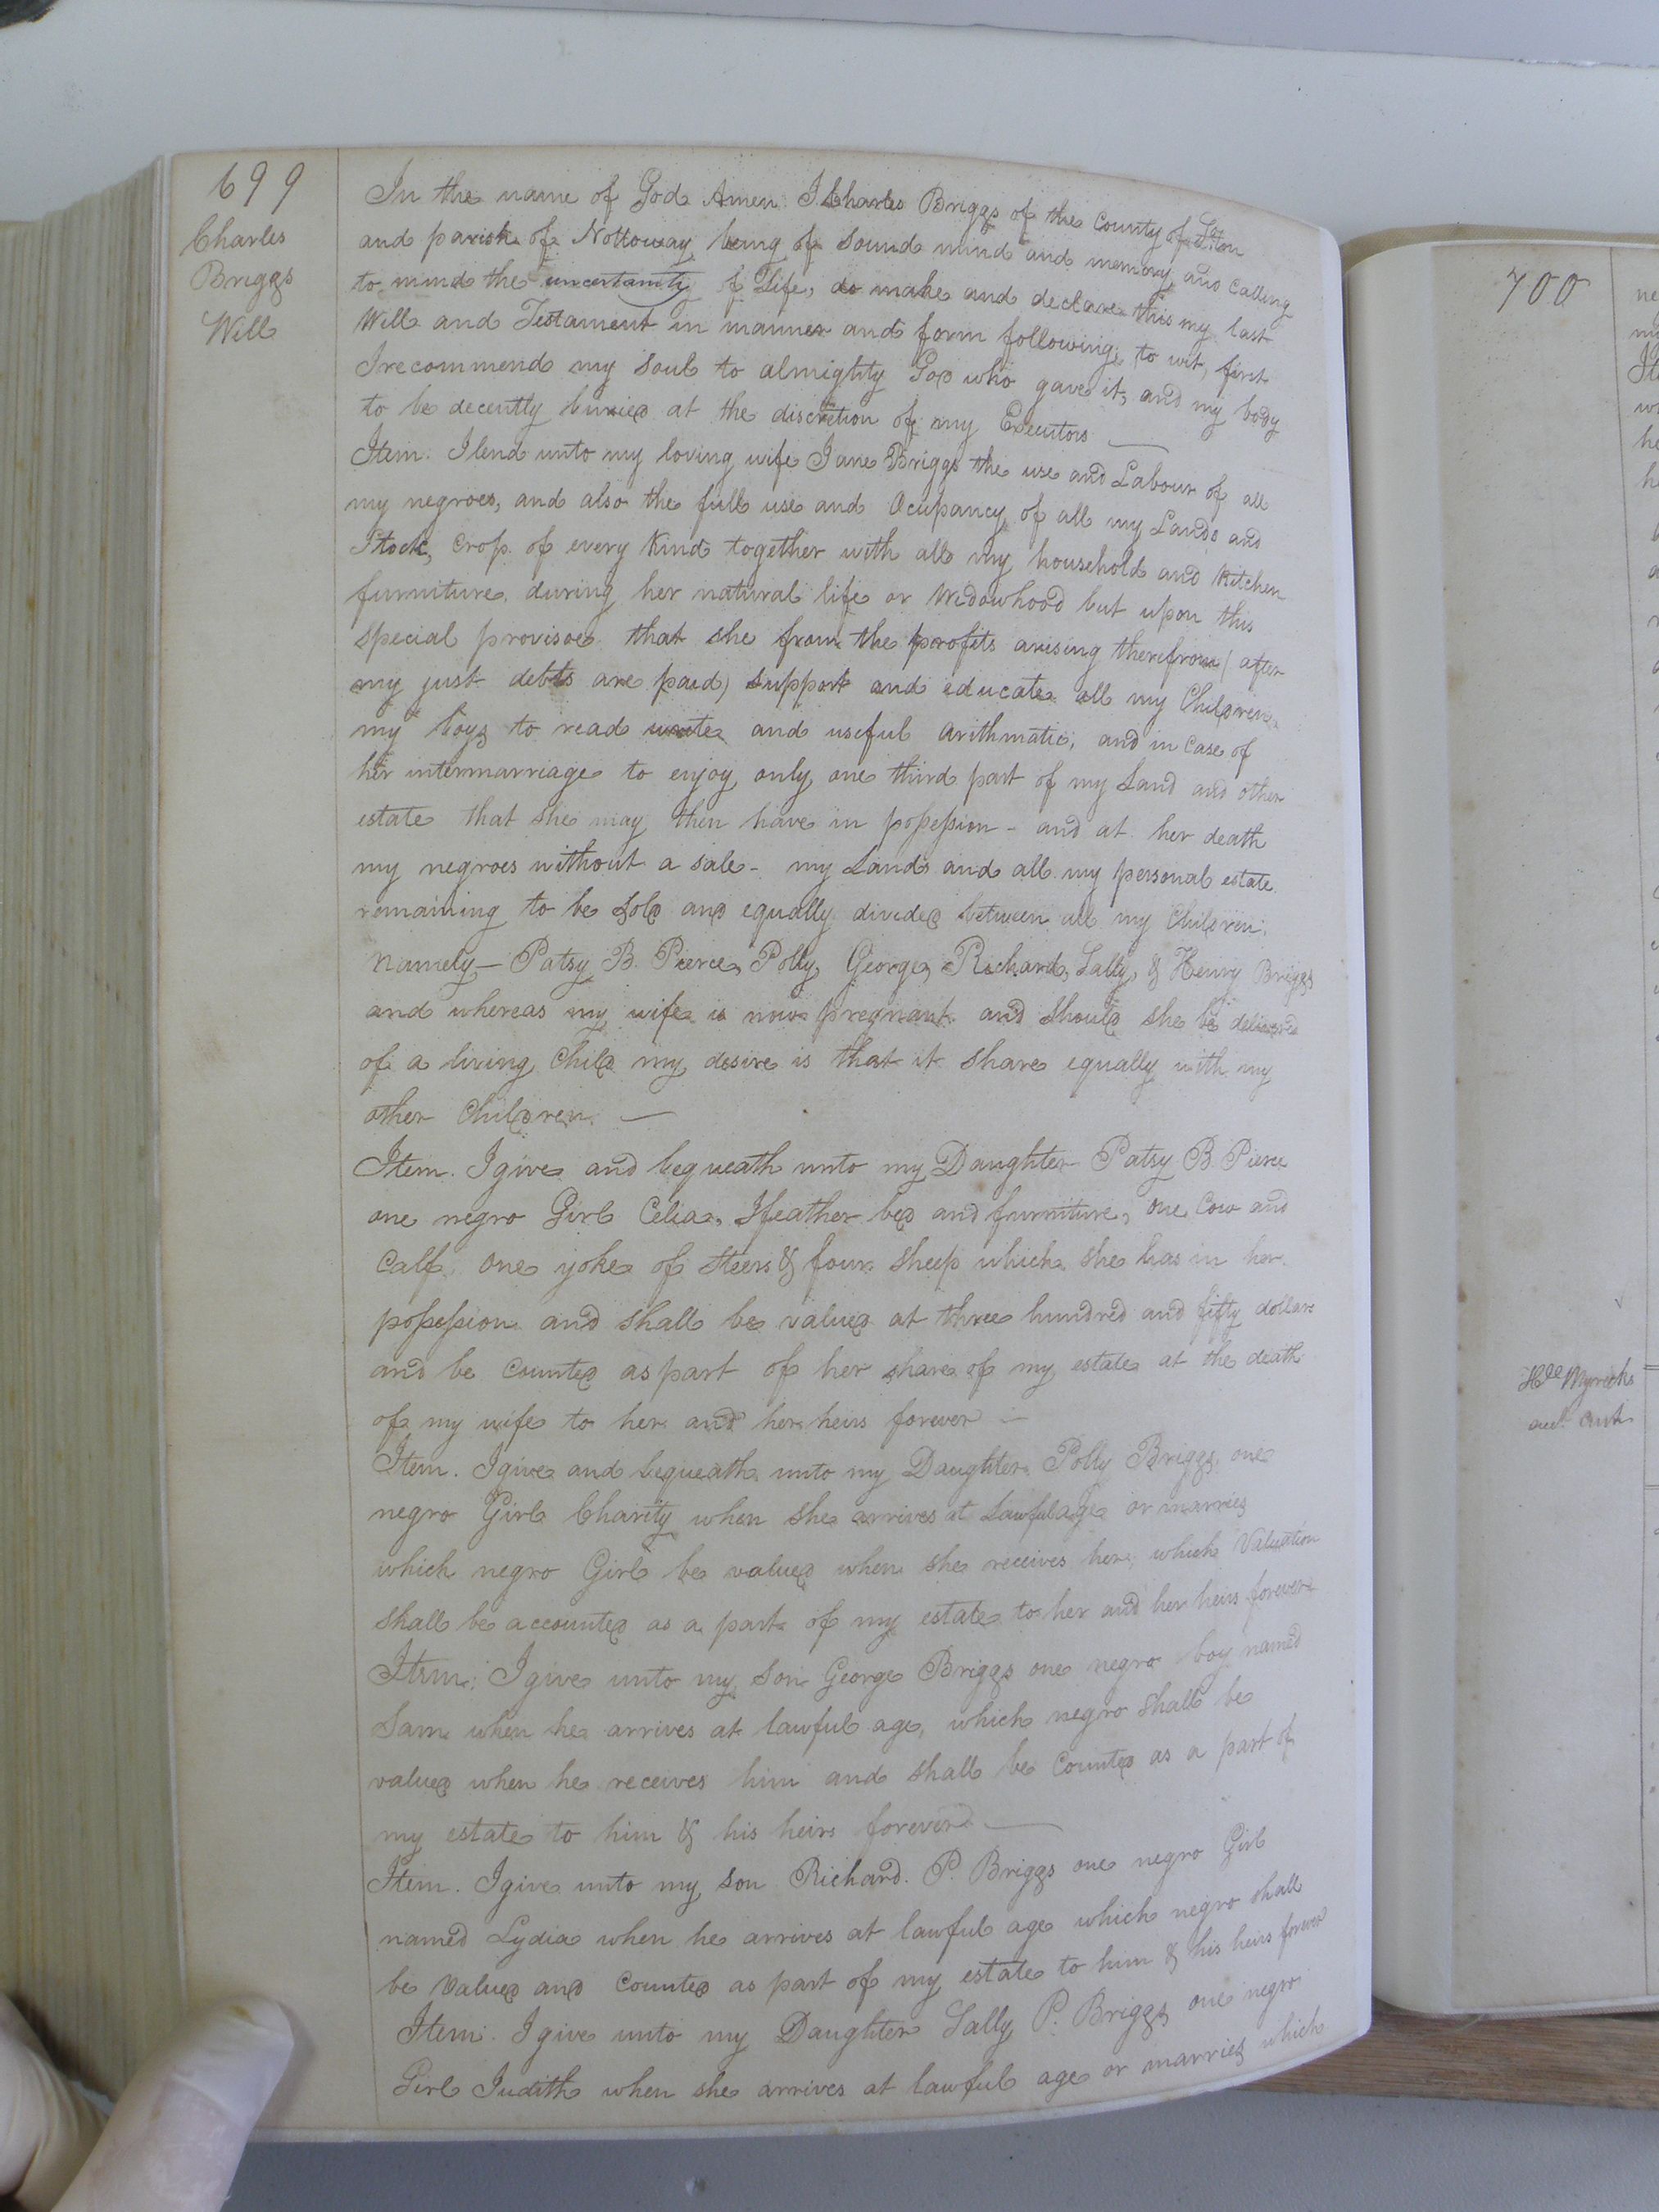 699
Charles
Briggs
Will
In the name of God Amen I Charles Briggs of the County of So.ton
and parish of Nottoway being of sound mind and memory and calling
to mind the uncertainty of Life, do make and declare this my last
Will and Testament in manner and form following, to wit, first
I recommend my soul to almighty God who gave it, and my body
to be decently buried at the discretion of my Executors —
Item. I lend unto my loving wife Jane Briggs the use and Labour of all
my negroes, and also the full use and Ocupancy of all my Lands and
Stock, Crop of every Kind together with all my household and Kitchen
furniture, during her natural life or Widowhood but upon this
special provisoe that she from the profits arising therefrom (after
my just debts are paid) support and educate all my Children
my boys to read write and useful arithmatic, and in case of
her intermarriage to enjoy only one third part of my Land and other
estate that she may then have in possession - and at her death
my negroes without a sale - my Lands and all my personal estate
remaining to be sold and equally divided between all my Children.
Namely — Patsy B. Pierce, Polly, George, Richard, Sally, & Henry Briggs
and whereas my wife is now pregnant and should she be delivered
of a living Child my desire is that it share equally with my
other Children. —
Item. I give and bequeath unto my Daughter Patsy B. Pierce
one negro Girl Celia, 1 feather bed and furniture, one Cow and
Calf, One yoke of steers & four sheep which she has in her
possession and shall be valued at three hundred and fifty dollars
and be counted as part of her share of my estate at the death
of my wife to her and her heirs forever —
Item. I give and bequeath unto my Daughter Polly Briggs, one
negro Girl Charity when she arrives at Lawful age or marries
which negro Girl be valued when she receives her, which Valuation
shall be accounted as a part of my estate to her and her heirs forever
Item: I give unto my son George Briggs one negro boy named
Sam when he arrives at lawful age, which negro shall be
valued when he receives him and shall be Counted as a part of
my estate to him & his heirs forever —
Item. I give unto my son Richard. P. Briggs one negro Girl
named Lydia when he arrives at lawful age which negro shall
be Valued and Counted as part of my estate to him & his heirs forever
Item. I give unto my Daughter Sally P. Briggs one negro
Girl Judith when she arrives at lawful age or marries which
700
Myricks